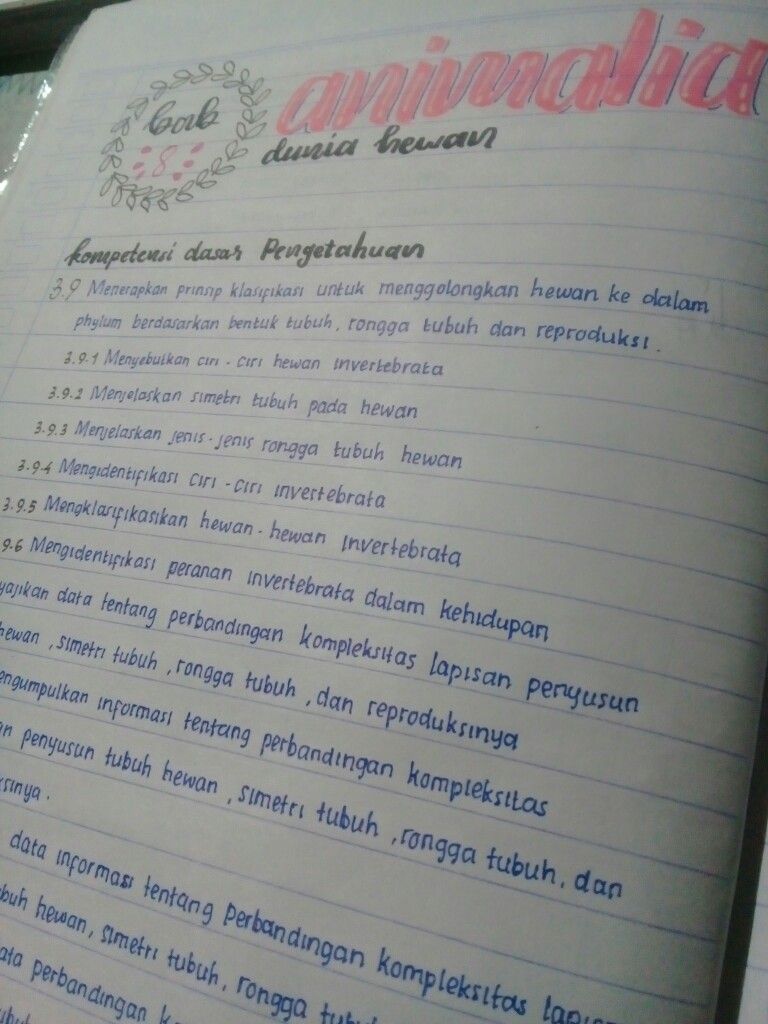 bab
:8:
animalia
dunia hewan
kompetensi dasar Pengetahuan
3.9 Menerapkan prinsip klasifikasi untuk menggolongkan hewan ke dalam
phylum berdasarkan bentuk tubuh, rongga tubuh dan reproduksi.
3.9.1 Menyebutkan ciri-ciri hewan invertebrata
3.9.2 Menjelaskan simetri tubuh pada hewan
3.9.3 Menjelaskan jenis-jenis rongga tubuh hewan
3.9.4 Mengidentifikasi ciri-ciri invertebrata
3.9.5 Mengklasifikasikan hewan-hewan invertebrata
9.6 Mengidentifikasi peranan invertebrata dalam kehidupan
yajikan data tentang perbandingan kompleksitas lapisan penyusun
hewan, simetri tubuh, rongga tubuh, dan reproduksinya
engumpulkan informasi tentang perbandingan kompleksitas
an penyusun tubuh hewan, simetri tubuh, rongga tubuh, dan
ksinya.
data informasi tentang perbandingan kompleksitas
buh hewan, simetri tubuh, rongga
ata perbandingan